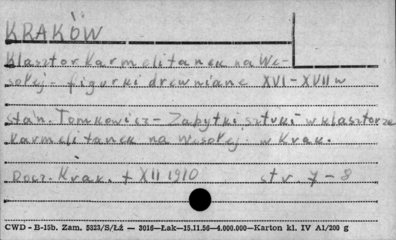 KRAKÓW
Klasztor Karmelitanek na We-
sołej - figurki drewniane XVI - XVII w
Stan. Tomkowicz - Zabytki sztuki w klasztorze
Karmelitanek na Wesołej w Krak.
Rocz. Krak. t XII 1910 str. 7 - 8
CWD - B-15b. Zam. 5823/S/Łż — 3016—Łak—15.11.56—4.000.000—Karton kl. IV A1/200 g